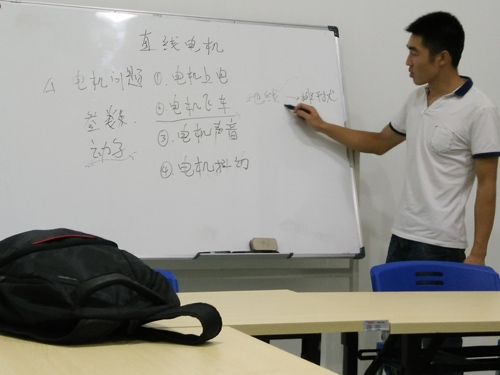 直线电机
电机问题 ①.电机上电
参数. ②电机飞车
动子. ③电机声音
④.电机抖动
地线